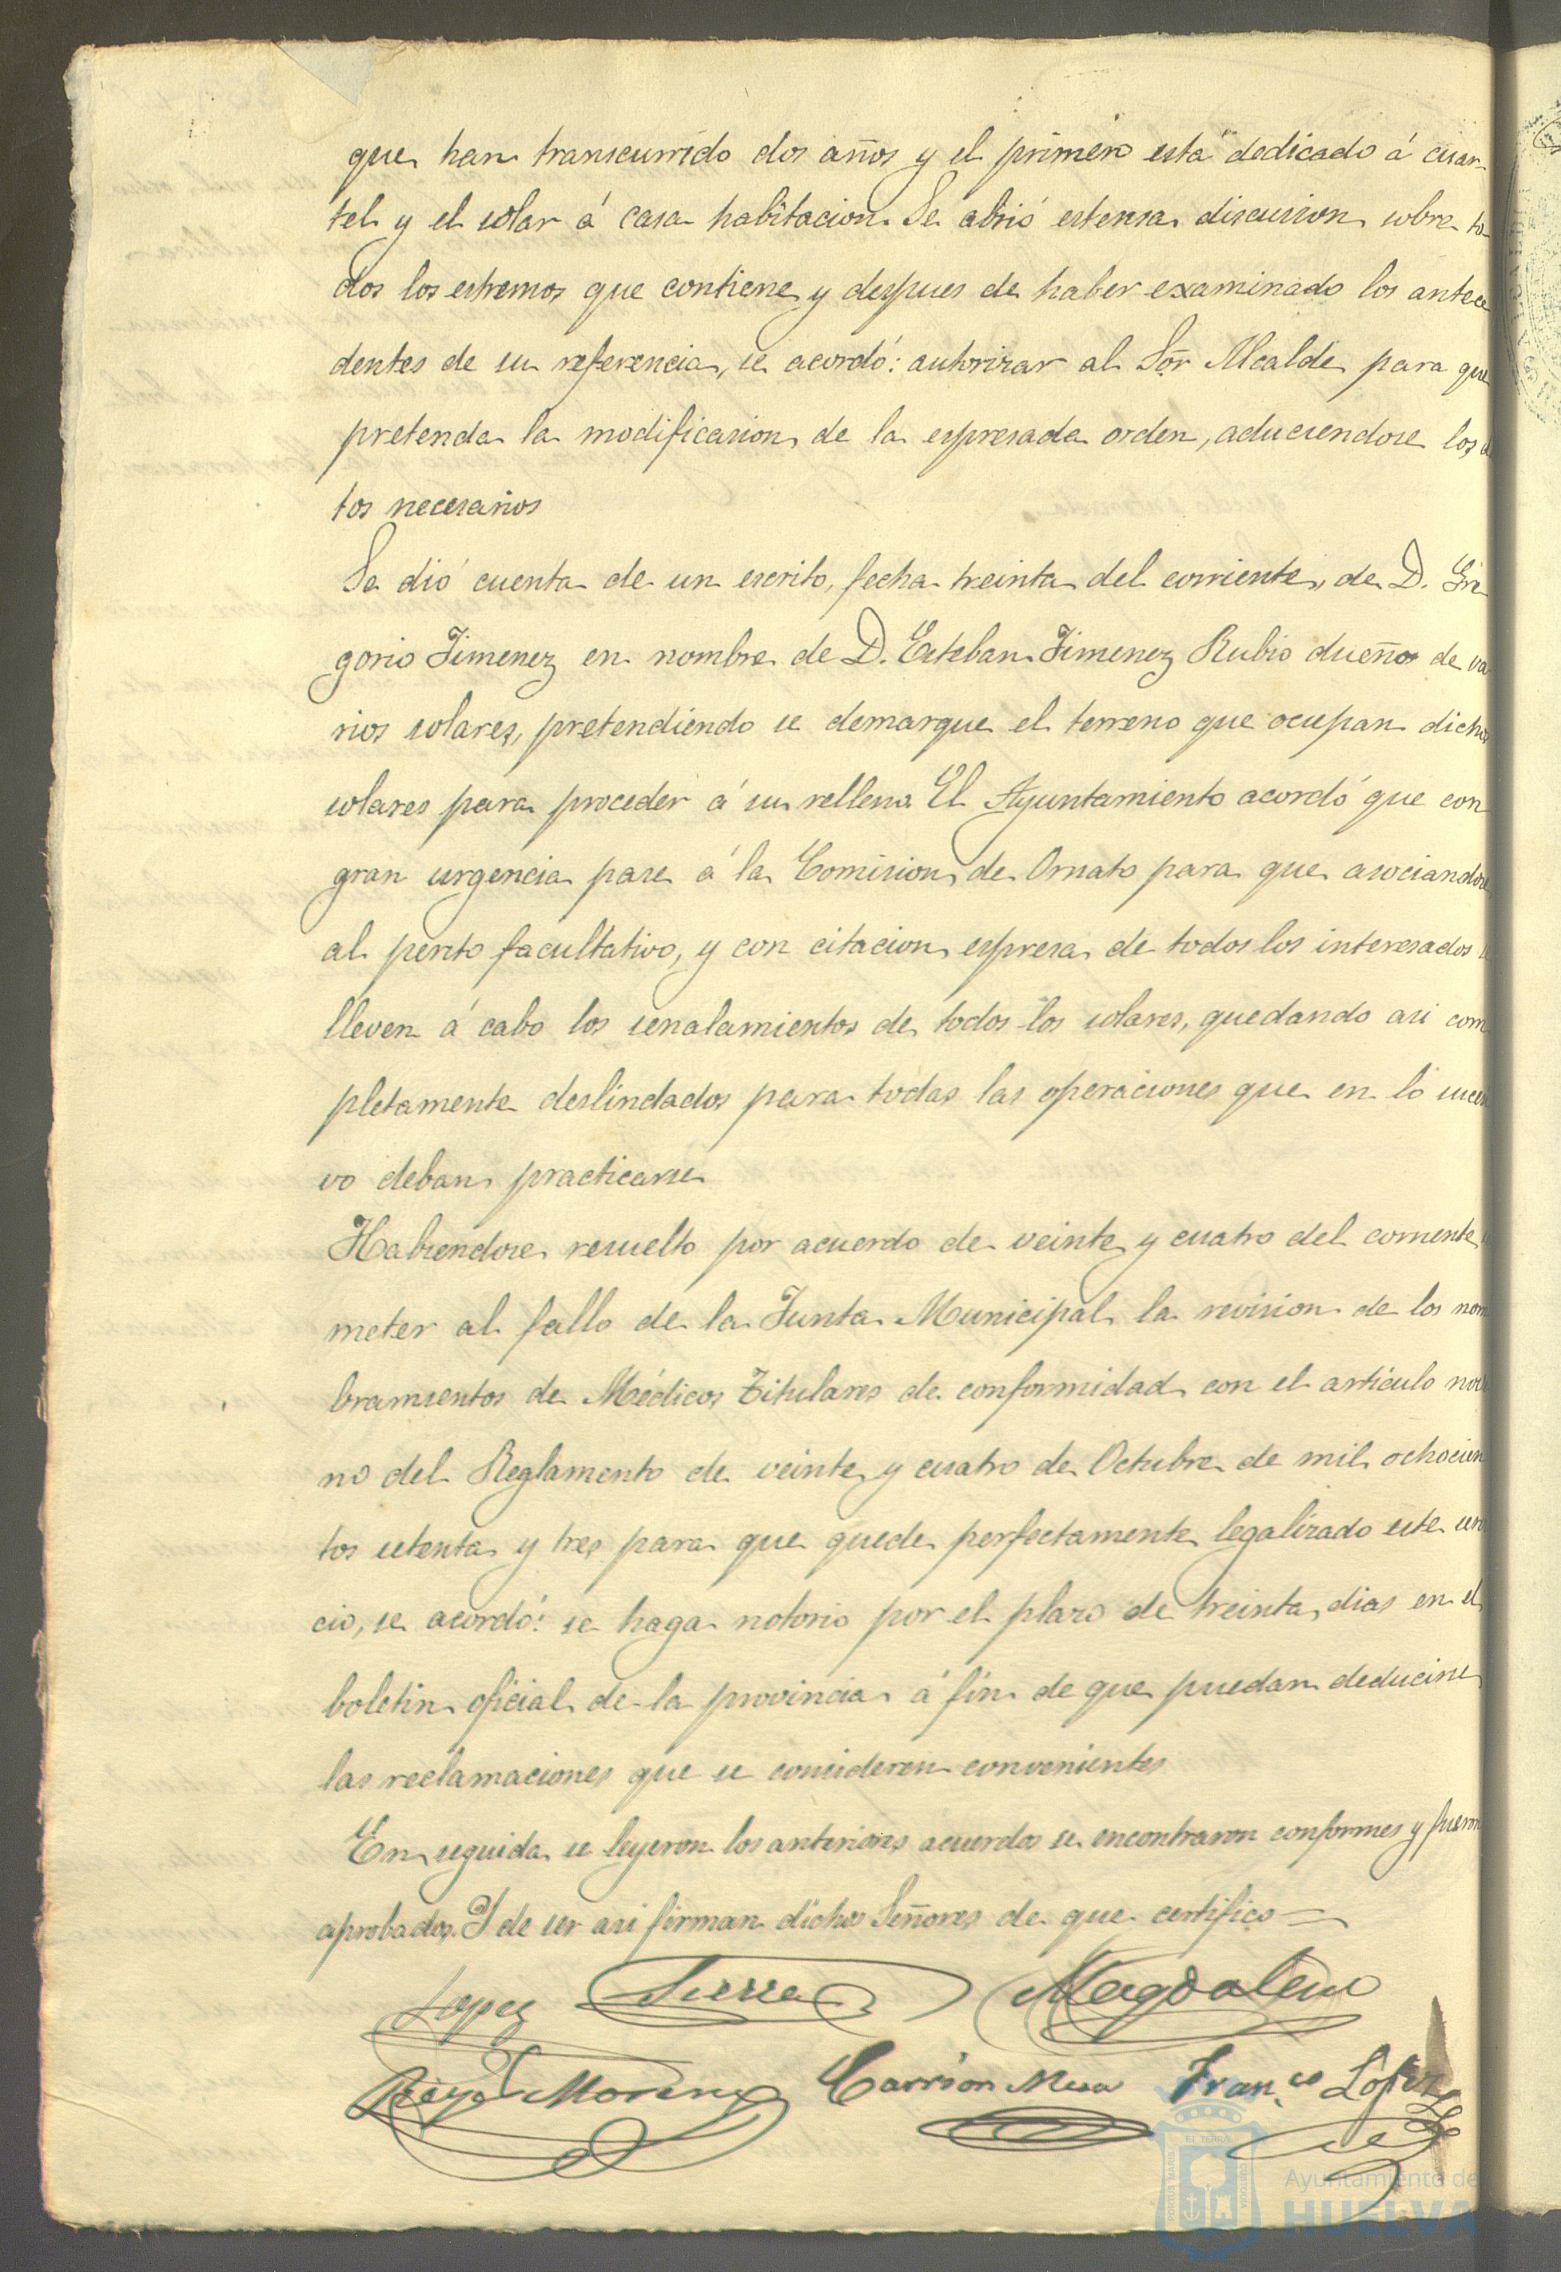 que han transcurrido dos años y el primero está dedicado á cuar-
tel y el solar á casa habitacion. Se abrió estensa discusion sobre to-
dos los estremos que contiene y despues de haber examinado los antece
dentes de su referencia, se acordó: autorizar al Sor Alcalde para que
pretenda la modificasion de la espresada orden, aduciendose los da
tos necesarios
Se dió cuenta de un escrito, fecha treinta del corriente, de D. Gre
gorio Jimenez en nombre de D. Esteban Jimenez Rubio dueño de va
rios solares, pretendiendo se demarque el terreno que ocupan dichos
solares para proceder á su relleno. El Ayuntamiento acordó que con
gran urgencia pase á la Comision de Ornato para que asociandose
al perito facultativo, y con citacion espresa de todos los interesados se
lleven á cabo los senalamientos de todos los solares, quedando asi com
pletamente deslindados para todas las operaciones que en lo suces
vo deban practicarse
Habiendose resuelto por acuerdo de veinte y cuatro del corriente
meter al fallo de la Junta Municipal la revision de los nom
bramientos de Médicos Titulares de conformidad con el artículo nove
no del Reglamento de veinte y cuatro de Octubre de mil ochocien
tos setenta y tres para que quede perfectamente legalizado este servi
cio, se acordó: se haga notorio por el plazo de treinta dias en el
boletin oficial de la provincia á fin de que puedan deducirse
las reclamaciones que se consideren convenientes
En seguida se leyeron los anteriores acuerdos se encontraron conformes y fueron
aprobados. Y de ser asi firman dichos Señores de que certifico=
Lopez Sierra Magdaleno
Moreno Carrion Mesa Fran.co Lopez
Ayuntamiento de
HUELVA